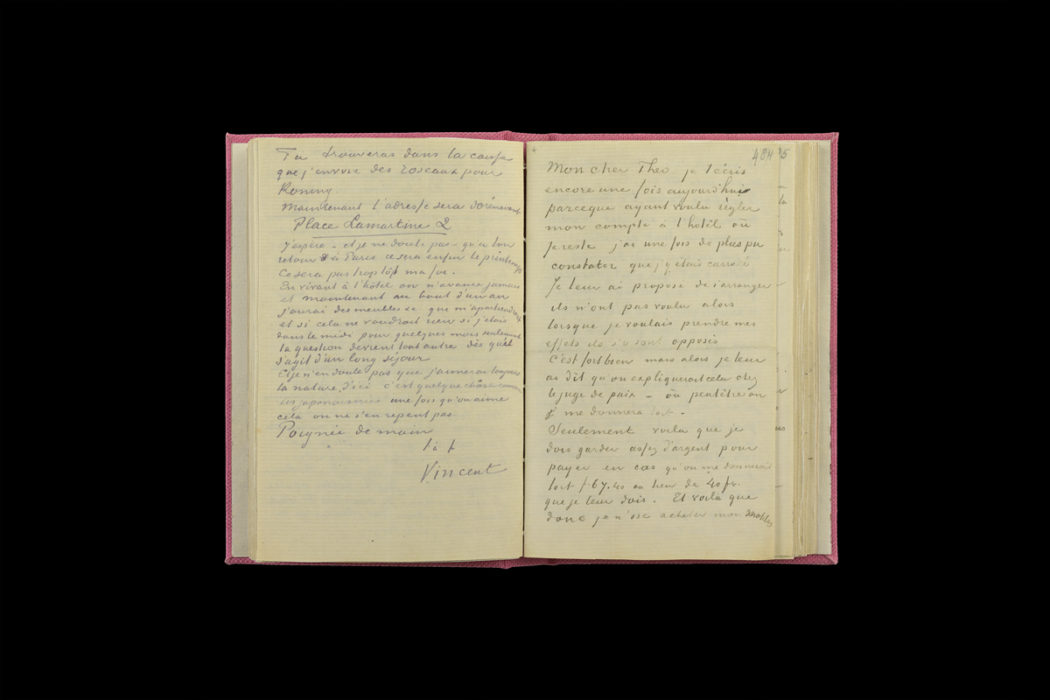 Tu trouveras dans la caisse
que j'envoie des roseaux pour
Koning
Maintenant l'adresse sera dorénavant
Place Lamartine 2
J'espère – et je ne doute pas – qu'à ton
retour à Paris ce sera enfin le printemps
Ce sera pas trop tôt ma foi.
En vivant à l'hôtel on n'avance jamais
et maintenant au bout d'un an
j'aurai des meubles &c que m'apartiendront
et si cela ne vaudrait rien si j'etais
dans le midi pour quelques mois seulement
la question devient tout autre dès qu'il
s'agit d'un long séjour
Et je n'en doute pas que j'aimerai toujours
la nature d'ici c'est quelque chôse comme
les japonaiseries une fois qu'on aime
cela on ne s'en repent pas
Poignée de main
t. à t.
Vincent
484 5
Mon cher Theo, je t'écris
encore une fois aujourd'hui
parceque ayant voulu règler
mon compte à l'hôtel où
je reste j'ai une fois de plus pu
constater que j'y étais carotté
Je leur ai proposé de s'arranger
ils n'ont pas voulu alors
lorsque je voulais prendre mes
effets ils s'y sont opposés
C'est fort bien mais alors je leur
ai dit qu'on expliquerait cela chez
le juge de paix – où peutêtre on
me donnera tort.
Seulement voila que je
dois garder assez d'argent pour
payer en cas qu'on me donnerait
tort f 67.40 au lieu de 40 fr.
que je leur dois. Et voilà que
donc je n'ose acheter mon